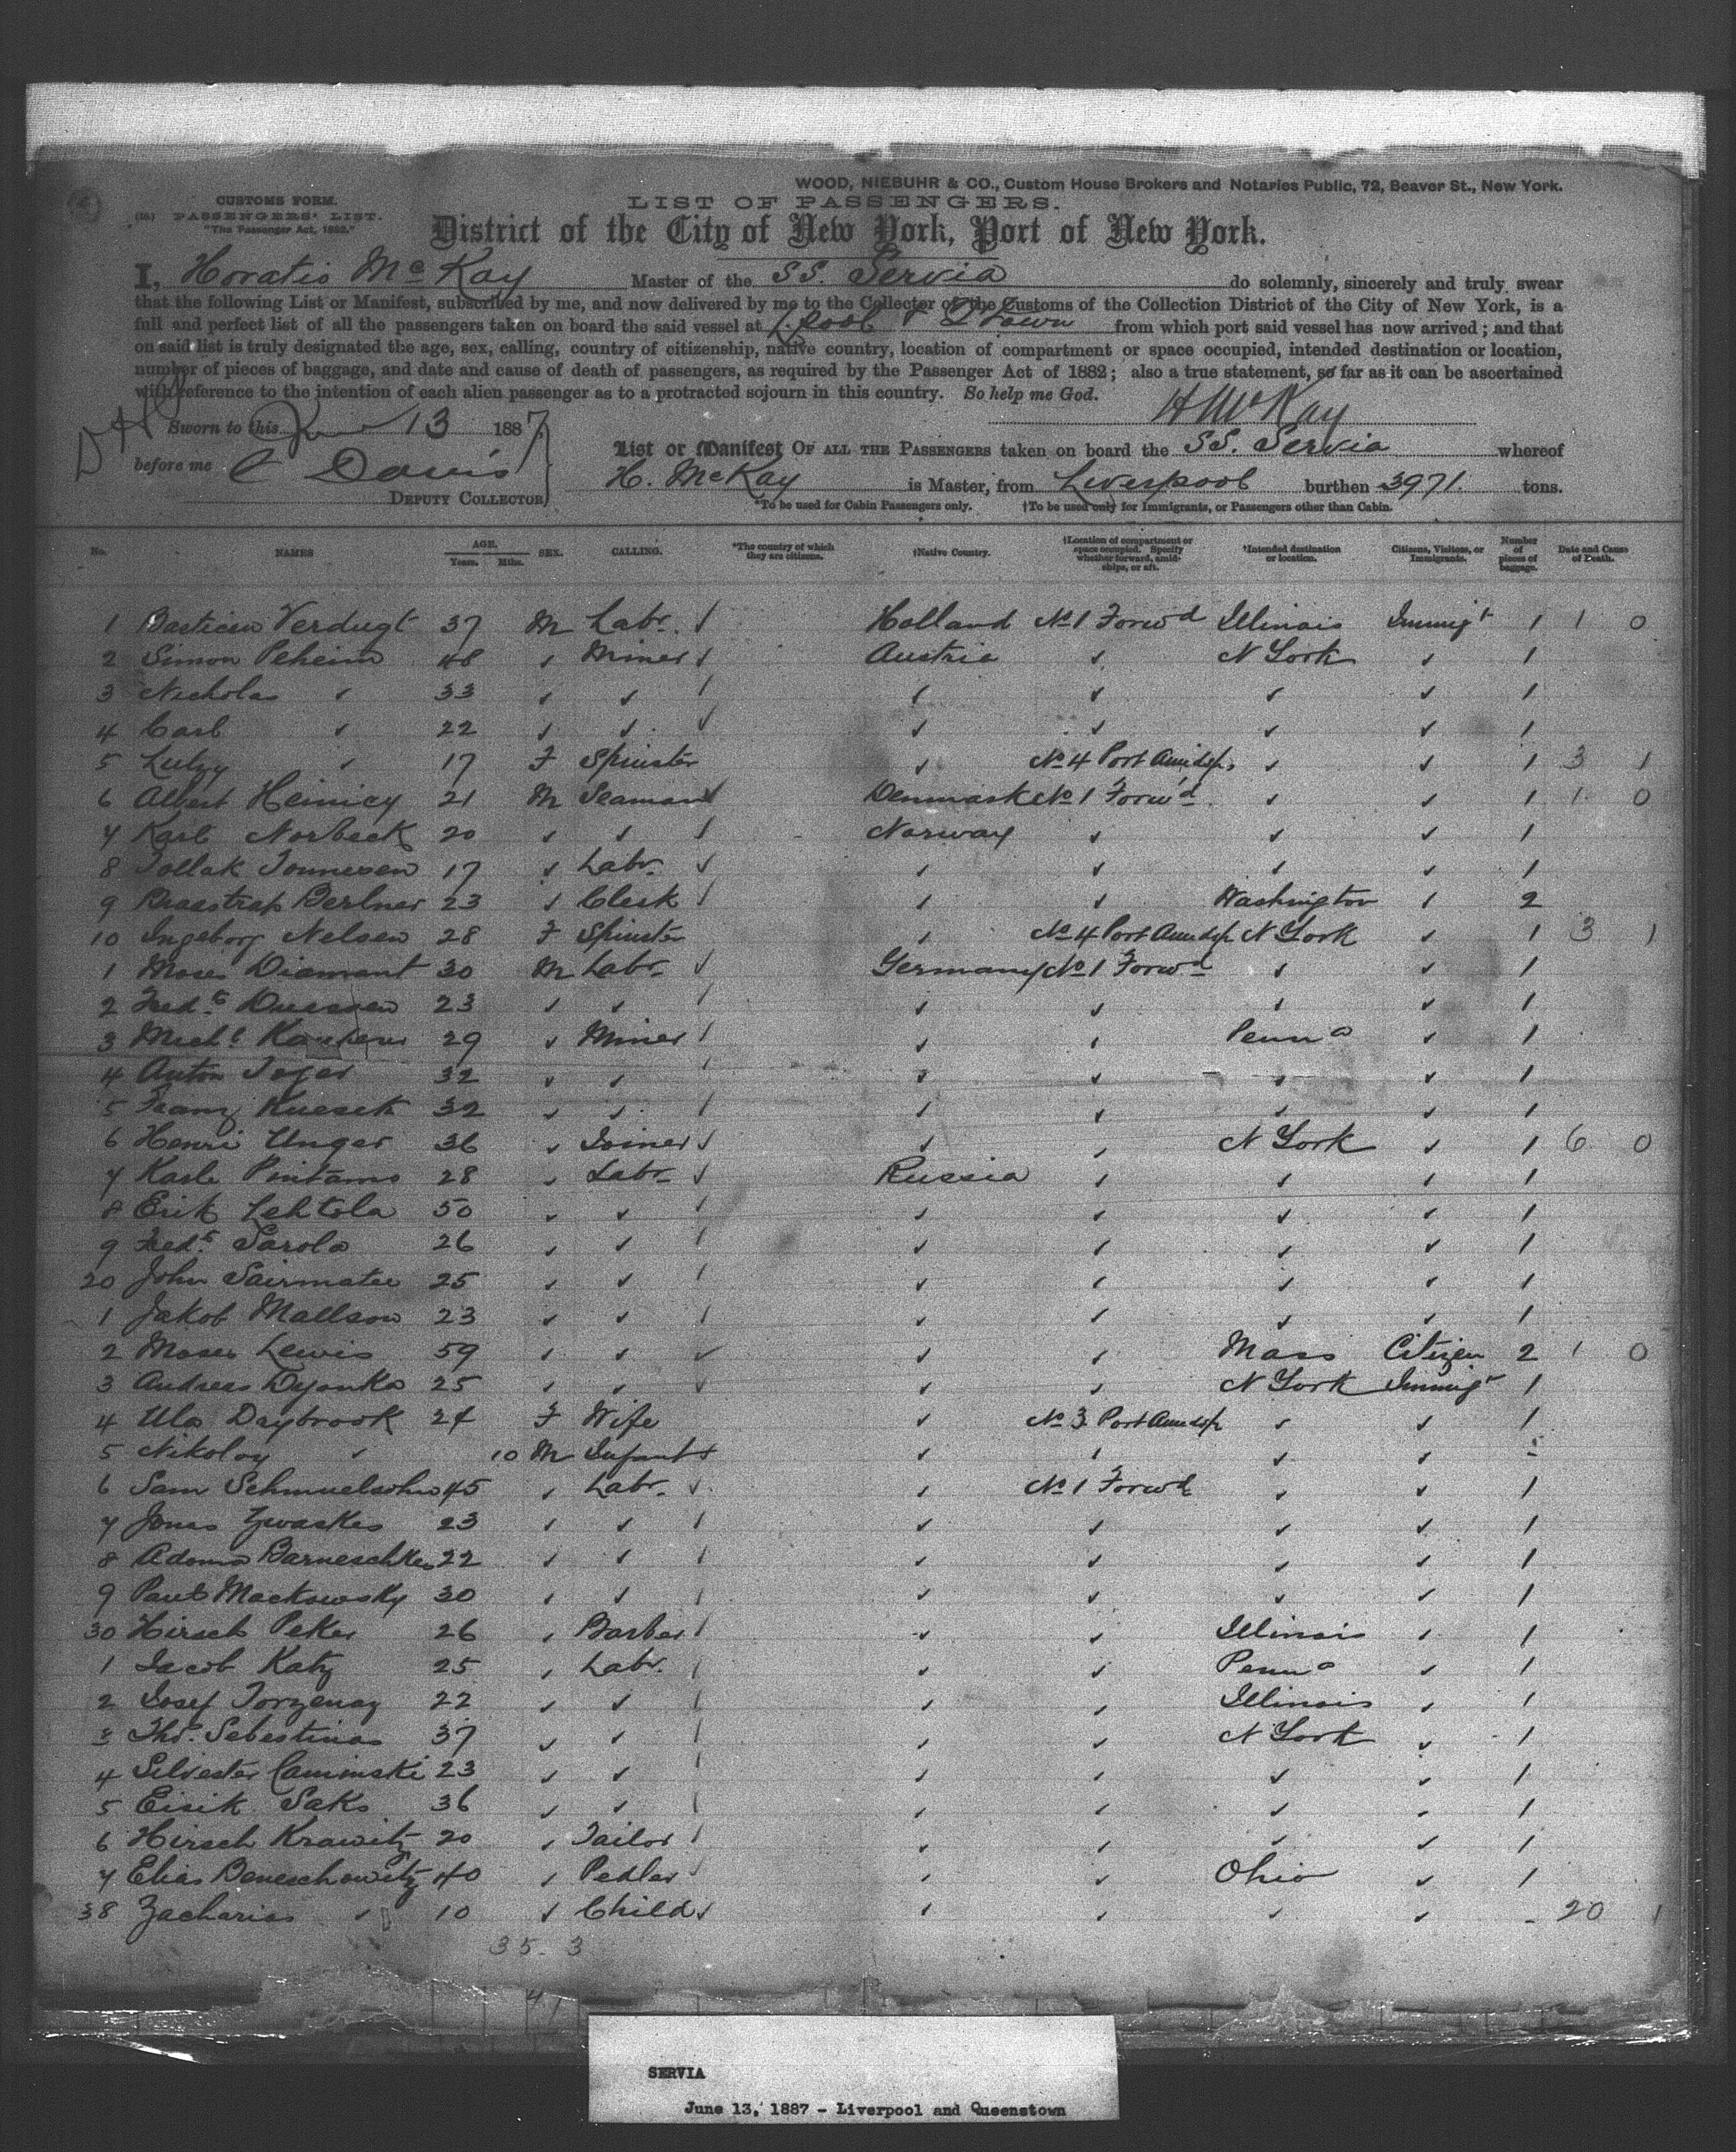 WOOD, NIEBUHR & CO., Custom House Brokers and Notaries Public, 72, Beaver St., New York.
CUSTOMS FORM.
PASSENGERS' LIST.
"The Passenger Act, 1882."
LIST OF PASSENGERS.
District of the City of New York, Port of New York.
I, Horatio McKay Master of the SS. Servia do solemnly, sincerely and truly swear
that the following List or Manifest, subscribed by me, and now delivered by me to the Collector of the Customs of the Collection District of the City of New York, is a
full and perfect list of all the passengers taken on board the said vessel at L.pool & Q Town from which port said vessel has now arrived; and that
on said list is truly designated the age, sex, calling, country of citizenship, native country, location of compartment or space occupied, intended destination or location,
number of pieces of baggage, and date and cause of death of passengers, as required by the Passenger Act of 1882; also a true statement, so far as it can be ascertained
with reference to the intention of each alien passenger as to a protracted sojourn in this country. So help me God.
H McKay
Sworn to this June 13 1887,
before me C Davis
DEPUTY COLLECTOR
List or Manifest OF ALL THE PASSENGERS taken on board the SS. Servia whereof
H. McKay is Master, from Liverpool burthen 3971. tons.
*To be used for Cabin Passengers only. †To be used only for Immigrants, or Passengers other than Cabin.
No. NAMES AGE. Years. Mths. SEX. CALLING. *The country of which they are citizens. †Native Country. †Location of compartment or space occupied. Specify whether forward, amidships, or aft. †Intended destination or location. Citizens, Visitors, or Immigrants. Number of pieces of baggage. Date and Cause of Death.
1 Verdugt 37 M Labr. Holland No 1 Forwd Illinois Immigt 1 1 0
2 Simon Peheim 48 ✓ Miner Austria ✓ N York ✓ 1
3 Nicholas ✓ 33 ✓ ✓ ✓ ✓ ✓ ✓ 1
4 Carl ✓ 22 ✓ ✓ ✓ ✓ ✓ ✓ 1
5 ✓ 17 F Spinster ✓ No 4 Port Amidsp. ✓ ✓ 1 3 1
6 Albert Heinicy 21 M Seaman Denmark No 1 Forwd ✓ ✓ 1 1 0
7 Karl Norbeck 20 ✓ ✓ Norway ✓ ✓ ✓ 1
8 Tollak Tonnesen 17 ✓ Labr. ✓ ✓ ✓ ✓ 1
9 Berlner 23 ✓ Clerk ✓ ✓ Washington ✓ 2
10 Ingeborg Nelsen 28 F Spinster ✓ No 4 Port Amidsp N York ✓ 1 3 1
1 Moses Diamant 30 M Labr. Germany No 1 Forwd ✓ ✓ 1
2 Fredk 23 ✓ ✓ ✓ ✓ ✓ ✓ 1
3 Michl 29 ✓ Miner ✓ ✓ Penna ✓ 1
4 Anton 32 ✓ ✓ ✓ ✓ ✓ ✓ 1
5 Franz Kuesek 32 ✓ ✓ ✓ ✓ ✓ ✓ 1
6 Henri Unger 36 ✓ Joiner ✓ ✓ N York ✓ 1 6 0
7 Karle Pintamo 28 ✓ Labr. Russia ✓ ✓ ✓ 1
8 Erik Lehtola 50 ✓ ✓ ✓ ✓ ✓ ✓ 1
9 Fredk Sarola 26 ✓ ✓ ✓ ✓ ✓ ✓ 1
20 John Sairmatee 25 ✓ ✓ ✓ ✓ ✓ ✓ 1
1 Jakob Mallson 23 ✓ ✓ ✓ ✓ ✓ ✓ 1
2 Moses Lewis 59 ✓ ✓ ✓ ✓ Mass Citizen 2 1 0
3 Andreas Dyonka 25 ✓ ✓ ✓ ✓ N York Immigt 1
4 Ula Daybrook 24 F Wife ✓ No 3 Port Amidsp ✓ ✓ 1
5 Nikoloy ✓ 10 M Infant ✓ ✓ ✓ ✓ -
6 Sam Schmuelsohn 45 ✓ Labr. ✓ No 1 Forwd ✓ ✓ 1
7 Jonas Zwaskes 23 ✓ ✓ ✓ ✓ ✓ ✓ 1
8 Adoma Barneschkes 22 ✓ ✓ ✓ ✓ ✓ ✓ 1
9 Paul Mackowsky 30 ✓ ✓ ✓ ✓ ✓ ✓ 1
30 Hirsch Peker 26 ✓ Barber ✓ ✓ Illinois ✓ 1
1 Jacob Katz 25 ✓ Labr. ✓ ✓ Penna ✓ 1
2 Josef Torzenay 22 ✓ ✓ ✓ ✓ Illinois ✓ 1
3 Thos. Sebestinas 37 ✓ ✓ ✓ ✓ N York ✓ 1
4 Silvester Caminski 23 ✓ ✓ ✓ ✓ ✓ ✓ 1
5 Eisik Saks 36 ✓ ✓ ✓ ✓ ✓ ✓ 1
6 Hirsch Krawitz 20 ✓ Tailor ✓ ✓ ✓ ✓ 1
7 Elias Beneschowitz 40 ✓ Pedlar ✓ ✓ Ohio ✓ 1
38 Zacharias ✓ 10 ✓ Child ✓ ✓ ✓ ✓ - 20 1
35. 3
SERVIA
June 13, 1887 - Liverpool and Queenstown